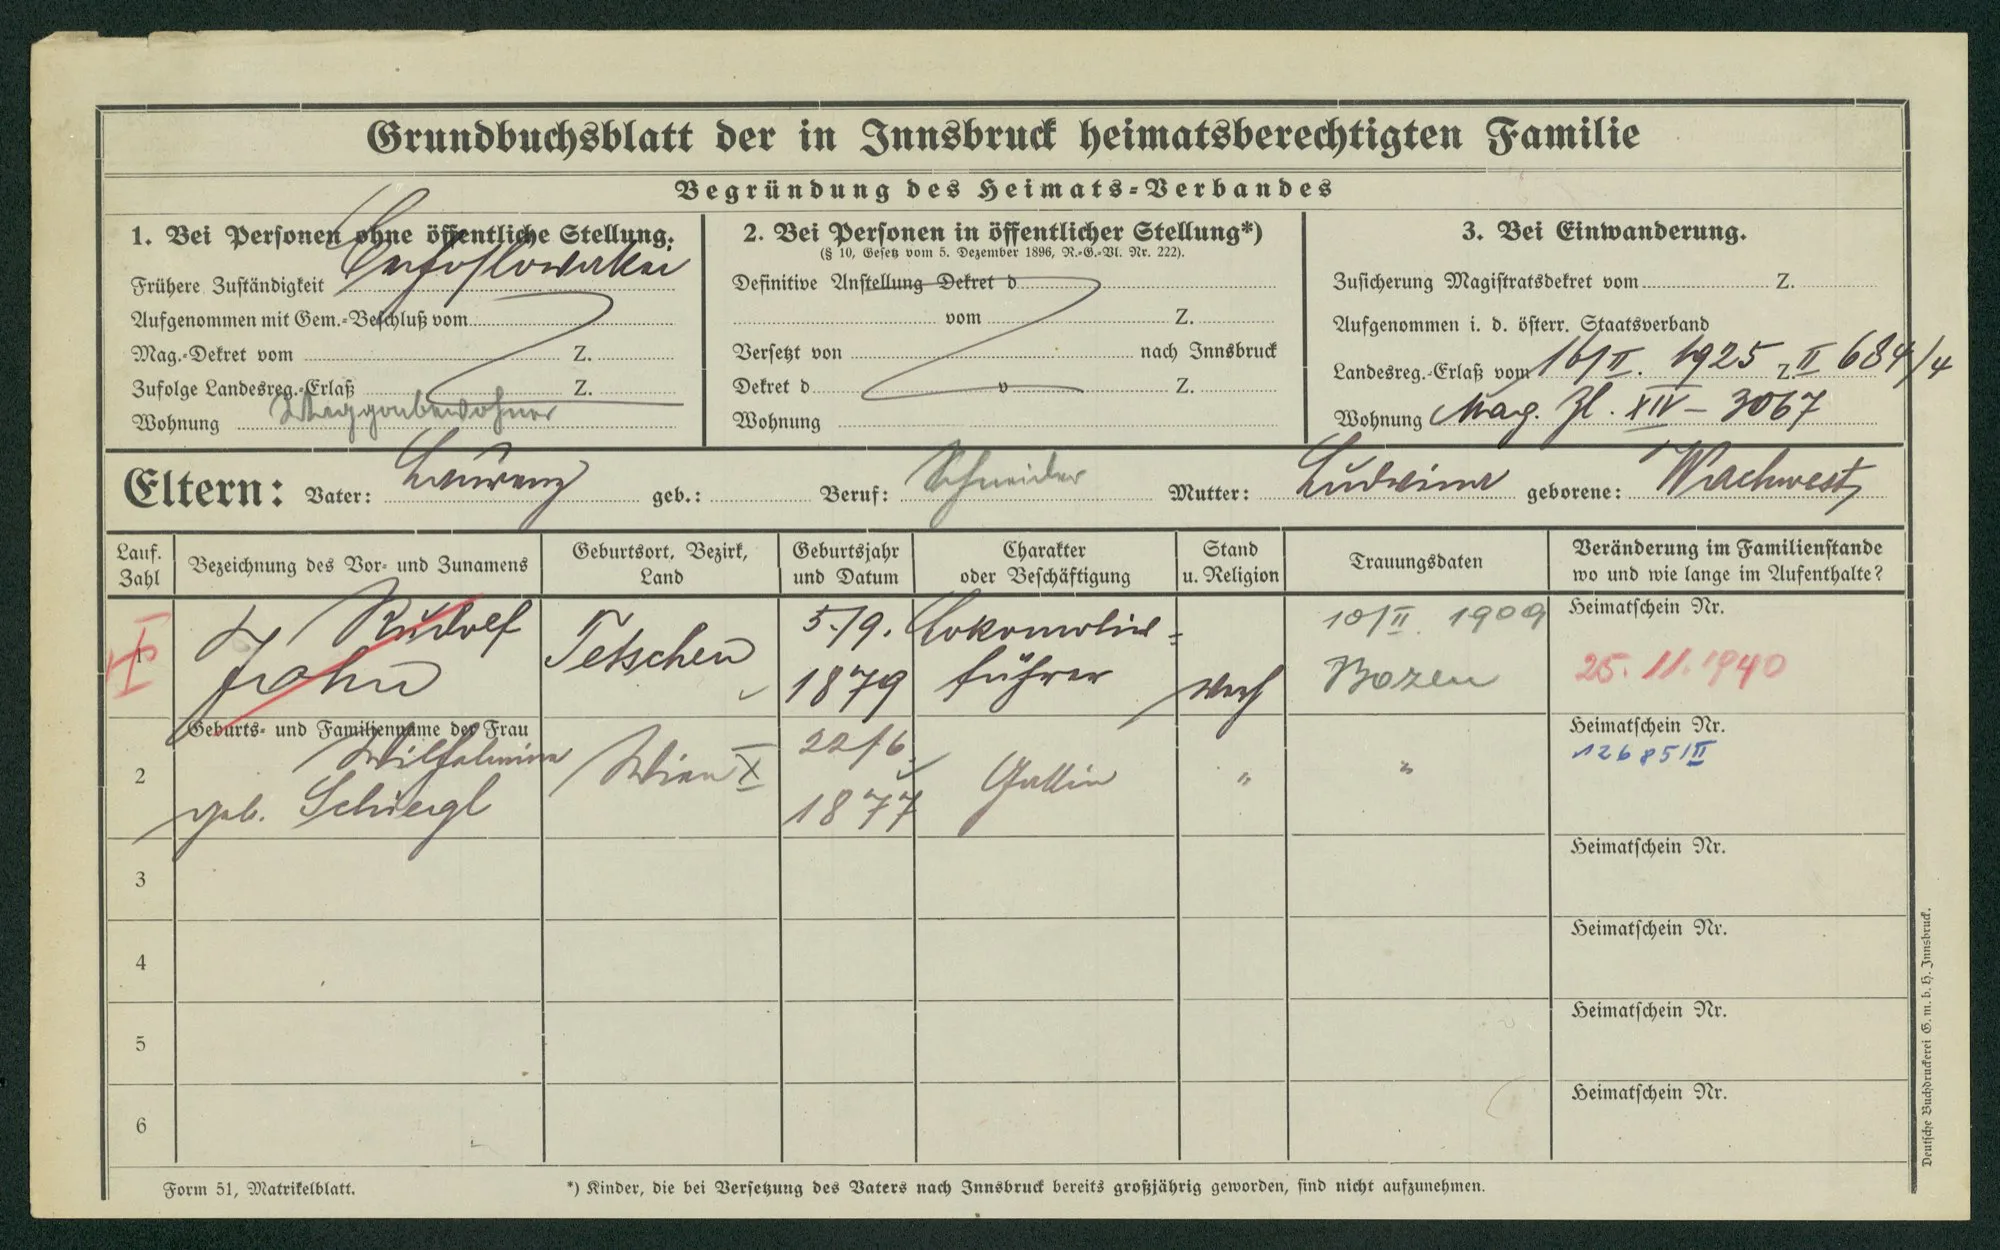 Grundbuchsblatt der in Innsbruck heimatsberechtigten Familie
Begründung des Heimats-Verbandes
1. Bei Personen ohne öffentliche Stellung.
Frühere Zuständigkeit
Aufgenommen mit Gem.-Beschluß vom
Mag.-Dekret vom Z.
Zufolge Landesreg.-Erlaß Z.
Wohnung Waggonbewohner
2. Bei Personen in öffentlicher Stellung*)
(§ 10, Gesetz vom 5. Dezember 1896, R.-G.-Bl. Nr. 222).
Definitive Anstellung Dekret d
vom Z.
Versetzt von nach Innsbruck
Dekret d. v Z.
Wohnung
3. Bei Einwanderung.
Zusicherung Magistratsdekret vom Z.
Aufgenommen i. d. österr. Staatsverband
Landesreg.-Erlaß vom 16/II. 1925 Z. II 684/4
Wohnung Mag. Zl. XIV - 3067
Eltern: Vater: Laurenz geb.: Beruf: Schneider Mutter: Ludwina geborene: Wachwest
Lauf. Zahl
Bezeichnung des Vor- und Zunamens
Geburtsort, Bezirk, Land
Geburtsjahr und Datum
Charakter oder Beschäftigung
Stand u. Religion
Trauungsdaten
Veränderung im Familienstande wo und wie lange im Aufenthalte?
1
Rudolf
John
Tetschen
5./9.
1879
Lokomotiv=
führer
10/II. 1909
Bozen
Heimatschein Nr.
25. 11. 1940
Geburts- und Familienname der Frau
2
Wilhelmine
geb. Schiegl
Wien X
22/6
1877
Gattin
"
"
Heimatschein Nr.
12685/II
3
Heimatschein Nr.
4
Heimatschein Nr.
5
Heimatschein Nr.
6
Heimatschein Nr.
Form 51, Matrikelblatt.
*) Kinder, die bei Versetzung des Vaters nach Innsbruck bereits großjährig geworden, sind nicht aufzunehmen.
Deutsche Buchdruckerei G. m. b. H. Innsbruck.